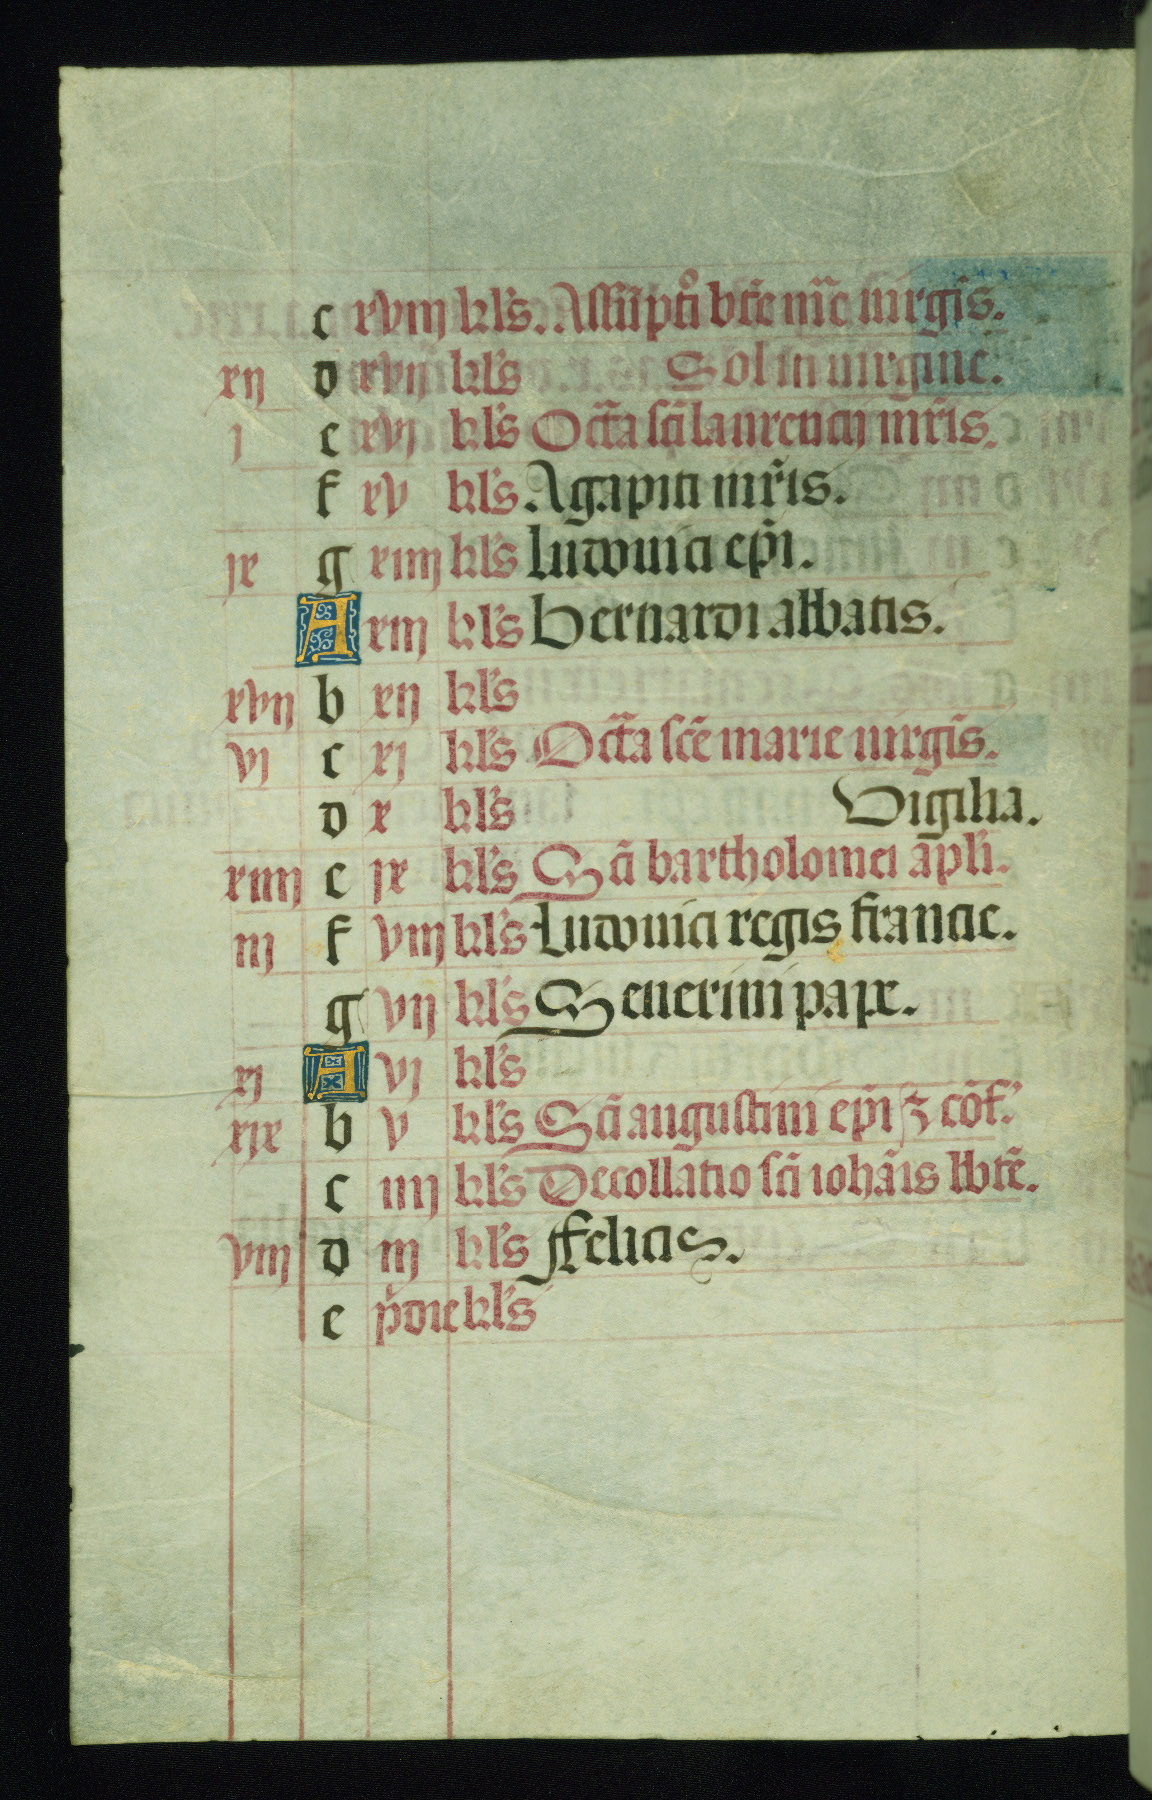 c xviij kl's. Assũpt̃o bt̃e m̃e uirgĩs.
xij d xvij kl's Sol in uirgine.
j e xvj kl's Oct̃a sc̃i laurencij mr̃is.
f xv kl's. Agapiti mr̃is.
ix g xiiij kl's Ludouici ep̃i.
A xiij kl's Bernardi abbatis.
xvij b xij kl's
vj c xj kl's Oct̃a sc̃e marie uirgĩs.
d x kl's Vigilia.
xiiij e ix kl's Sc̃i bartholomei ap̃li.
iij f viij kl's Ludouici regis francie.
g vij kl's Seuerini pape.
xj A vj kl's
xix b v kl's Sc̃i augustini ep̃i ⁊ cõf.
c iiij kl's Decollatio sc̃i iohãis bbt̃e.
viij d iij kl's Felicis.
e p̃die kl's